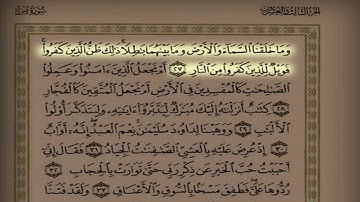 الجزء الثالث والعشرون
سورة ص
وَمَا خَلَقْنَا ٱلسَّمَآءَ وَٱلْأَرْضَ وَمَا بَيْنَهُمَا بَٰطِلًا ذَٰلِكَ ظَنُّ ٱلَّذِينَ كَفَرُوا۟
فَوَيْلٌ لِّلَّذِينَ كَفَرُوا۟ مِنَ ٱلنَّارِ ٢٧ أَمْ نَجْعَلُ ٱلَّذِينَ ءَامَنُوا۟ وَعَمِلُوا۟
ٱلصَّٰلِحَٰتِ كَٱلْمُفْسِدِينَ فِى ٱلْأَرْضِ أَمْ نَجْعَلُ ٱلْمُتَّقِينَ كَٱلْفُجَّارِ
٢٨ كِتَٰبٌ أَنزَلْنَٰهُ إِلَيْكَ مُبَٰرَكٌ لِّيَدَّبَّرُوٓا۟ ءَايَٰتِهِۦ وَلِيَتَذَكَّرَ أُو۟لُوا۟
ٱلْأَلْبَٰبِ ٢٩ وَوَهَبْنَا لِدَاوُۥدَ سُلَيْمَٰنَ نِعْمَ ٱلْعَبْدُ إِنَّهُۥٓ أَوَّابٌ
٣٠ إِذْ عُرِضَ عَلَيْهِ بِٱلْعَشِىِّ ٱلصَّٰفِنَٰتُ ٱلْجِيَادُ ٣١ فَقَالَ إِنِّىٓ
أَحْبَبْتُ حُبَّ ٱلْخَيْرِ عَن ذِكْرِ رَبِّى حَتَّىٰ تَوَارَتْ بِٱلْحِجَابِ ٣٢
رُدُّوهَا عَلَىَّ فَطَفِقَ مَسْحًۢا بِٱلسُّوقِ وَٱلْأَعْنَاقِ ٣٣ وَلَقَدْ فَتَنَّا